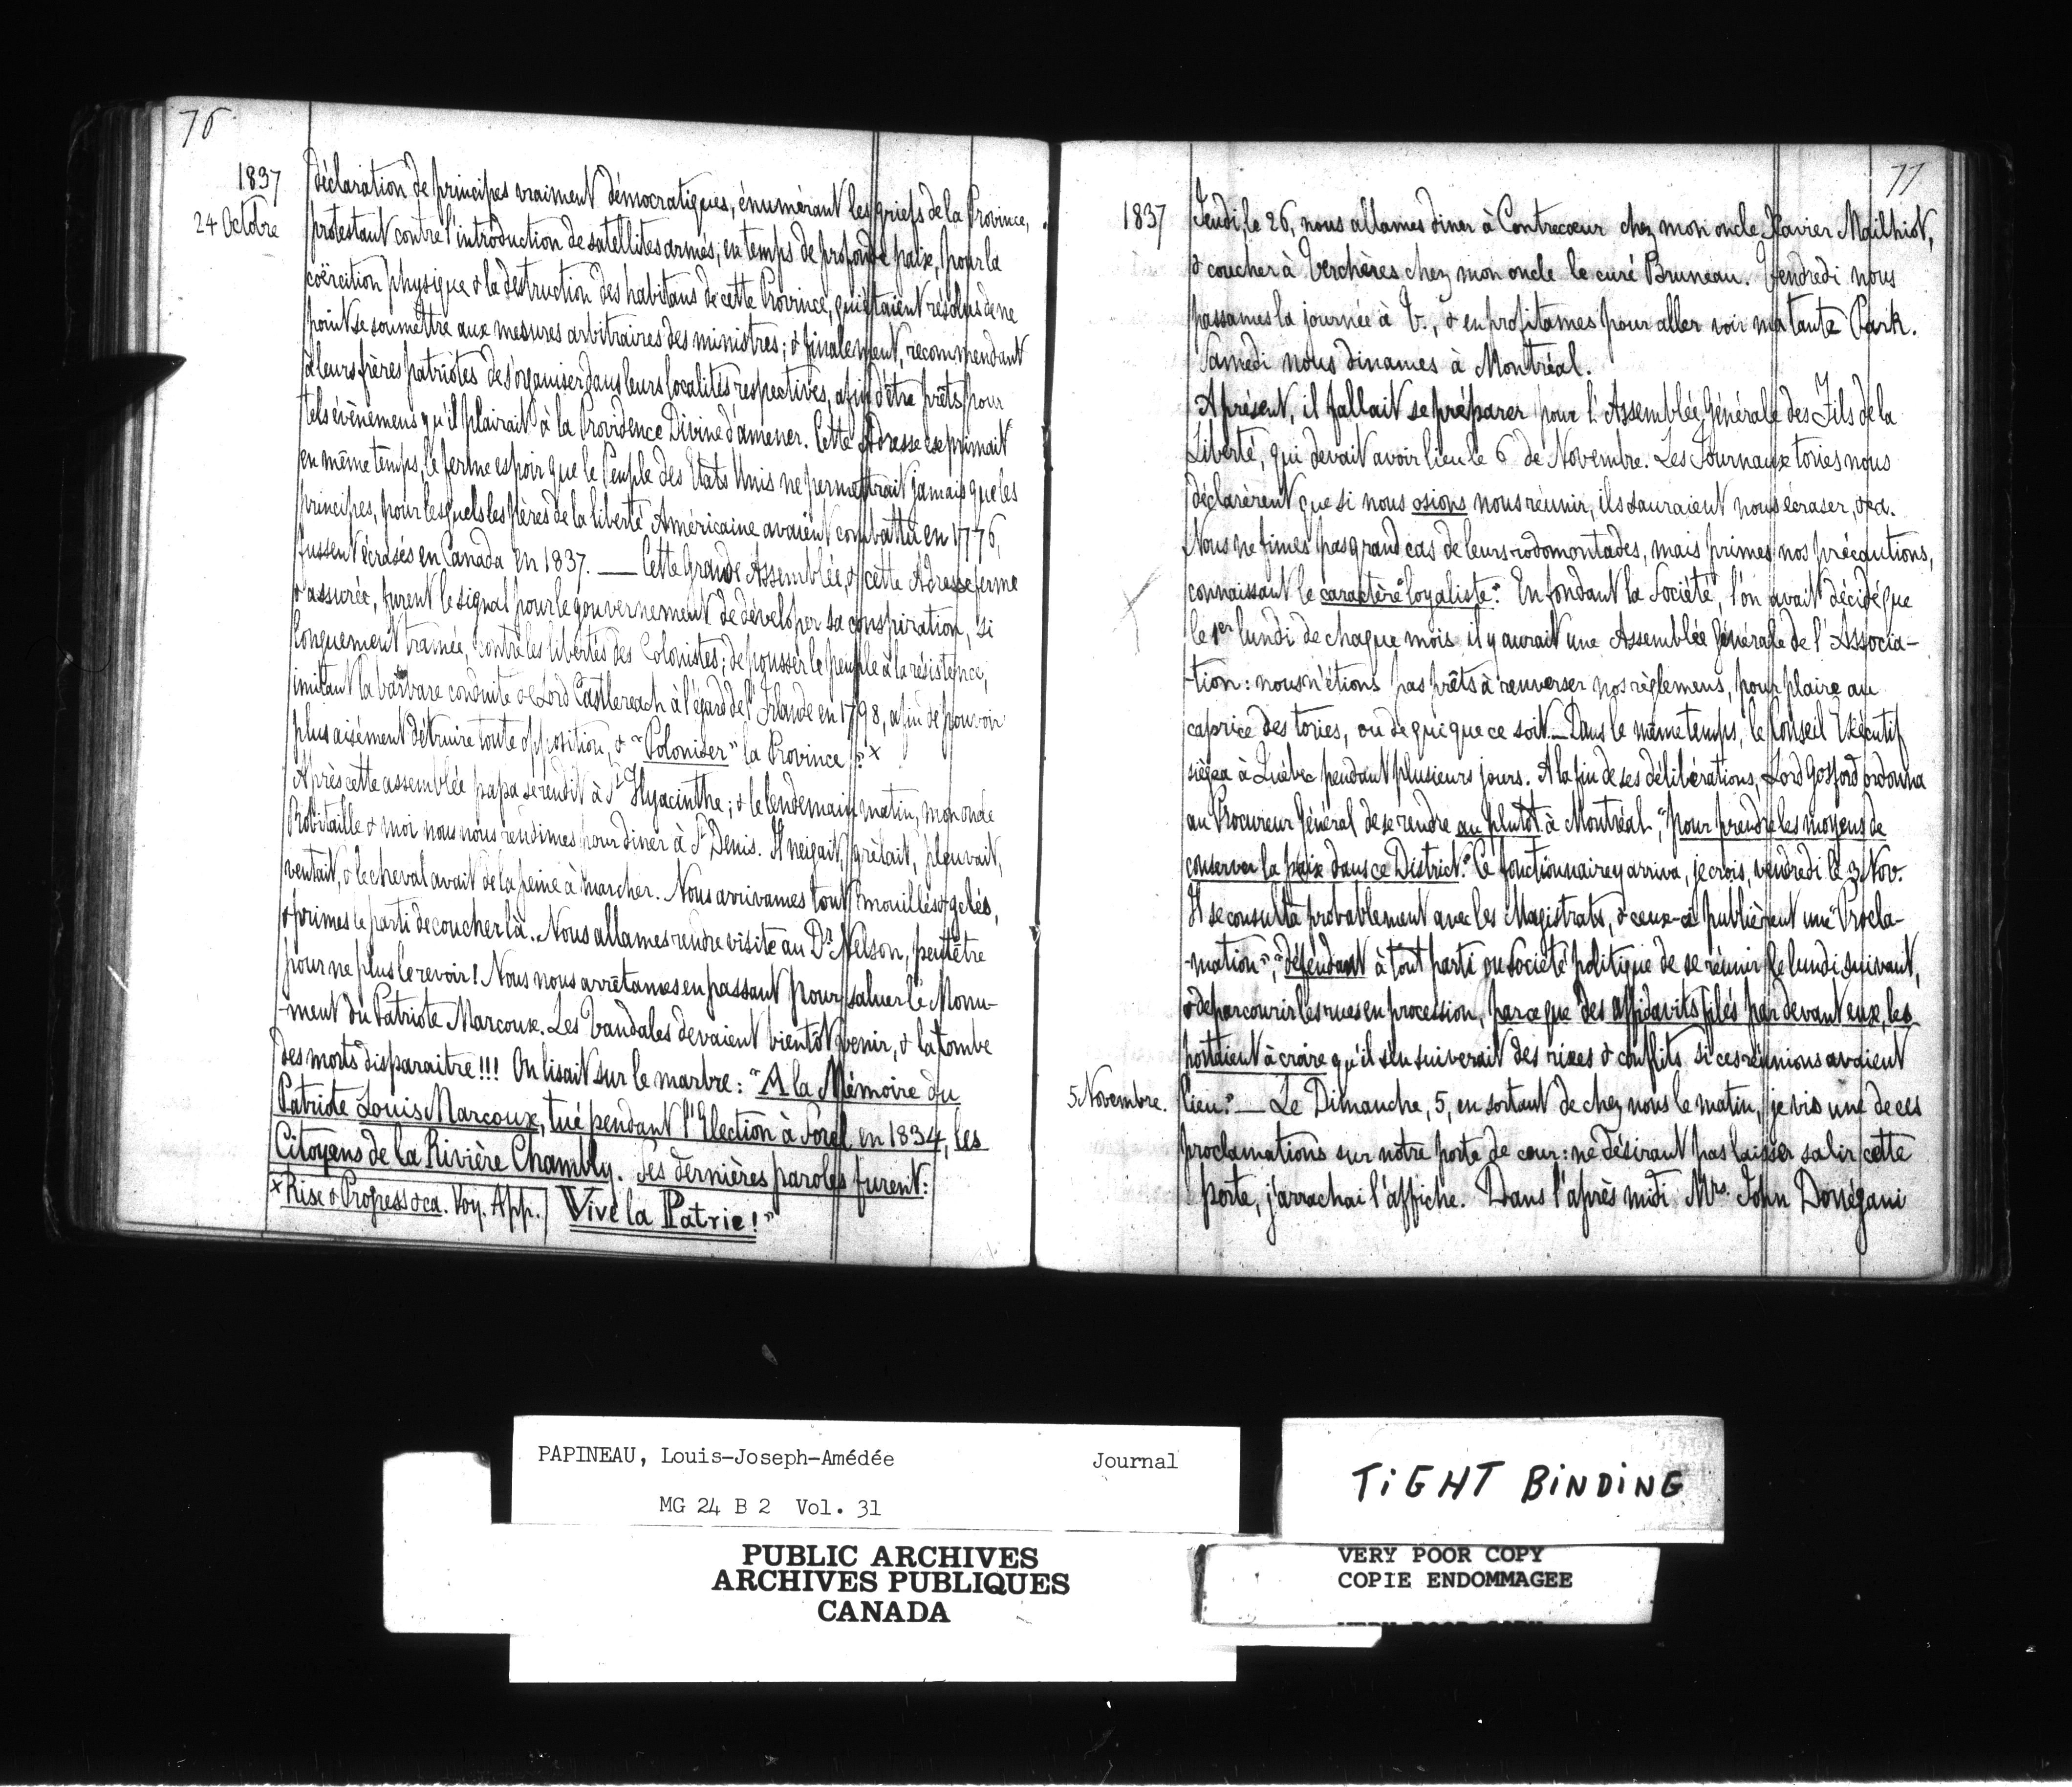 76
1837
24 Octobre
déclaration de principes vraiment démocratiques, énumérant les griefs de la Province,
protestant contre l'introduction de satellites armés, en temps de profonde paix, pour la
coërcition physique & la destruction des habitans de cette Province, qui étaient résolus de ne
point se soumettre aux mesures arbitraires des ministres; & finalement, recommendant
à leurs frères patriotes de s'organiser dans leurs localités respectives, afin d'être prêts pour
tels évènemens qu'il plairait à la Providence Divine d'amener. Cette Adresse exprimait
en même temps, le ferme espoir que le Peuple des Etats Unis ne permettrait jamais que les
principes, pour lesquels les pères de la liberté Américaine avaient combattu en 1776,
fussent écrasés en Canada en 1837. — Cette Grande Assemblée, & cette Adresse ferme
& assurée, furent le signal pour le gouvernement de développer sa conspiration, si
longuement tramée, contre les libertés des Colonistes; de pousser le peuple à la résistence,
imitant la barbare conduite de Lord Castlereach à l'égard de l'Irlande en 1798, afin de pouvoir
plus aisément détruire toute opposition, & "Coloniser" la Province !" x
Après cette assemblée papa se rendit à St Hyacinthe; & le lendemain matin, mon oncle
Robitaille & moi nous nous rendimes pour diner à St Denis. Il neigait, grêlait, pleuvait,
ventait, & le cheval avait de la peine à marcher. Nous arrivames tout mouillés & gelés,
& primes le parti de coucher là. Nous allames rendre visite au Dr. Nelson, peutêtre
pour ne plus le revoir! Nous nous arrêtames en passant pour saluer le Monu-
-ment du Patriote Marcoux. Les Vandales devaient bientôt venir, & la tombe
des morts disparaitre!!! On lisait sur le marbre: "A la Mémoire du
Patriote Louis Marcoux, tué pendant l'Election à Sorel en 1834, les
Citoyens de la Rivière Chambly. Ses dernières paroles furent:
x Rise & Progress &ca. Voy. App.
Vive la Patrie!"
77
1837
Jeudi, le 26, nous allames diner à Contrecoeur chez mon oncle Xavier Mailhiot,
& coucher à Verchères chez mon oncle le curé Bruneau. Vendredi nous
passames la journée à V., & en profitames pour aller voir ma tante Park.
Samedi nous dinames à Montréal.
A présent, il fallait se préparer pour l'Assemblée Générale des Fils de la
Liberté, qui devait avoir lieu le 6 de Novembre. Les Journaux tories nous
déclarèrent que si nous osions nous réunir, ils sauraient nous écraser, &ca.
Nous ne fimes pas grand cas de leurs rodomontades, mais primes nos précautions,
connaissant le caractère "loyaliste". En fondant la Société, l'on avait décidé que
le 1er lundi de chaque mois il y aurait une Assemblée Générale de l'Associa-
-tion: nous n'étions pas prêts à renverser nos règlemens, pour plaire au
caprice des tories, ou de qui que ce soit. — Dans le même temps, le Conseil Exécutif
siègea à Québec pendant plusieurs jours. A la fin de ses délibérations, Lord Gosford ordonna
au Procureur Général de se rendre au plutôt à Montréal, "pour prendre les moyens de
conserver la paix dans ce District". Ce fonctionnaire y arriva, je crois, vendredi le 3 Nov.
Il se consulta probablement avec les Magistrats, & ceux-ci publièrent une "Procla-
-mation", "défendant à tout parti ou société politique de se réunir le lundi suivant,
& de parcourir les rues en procession, parce que des affidavits filés par devant eux, les
portaient à croire qu'il s'en suiverait des rixes & conflits si ces réunions avaient
5 Novembre.
lieu". — Le Dimanche, 5, en sortant de chez nous le matin, je vis une de ces
proclamations sur notre porte de cour: ne désirant pas laisser salir cette
porte, j'arrachai l'affiche. Dans l'après midi Mrs. John Donégani
PAPINEAU, Louis-Joseph-Amédée Journal
MG 24 B 2 Vol. 31
PUBLIC ARCHIVES
ARCHIVES PUBLIQUES
CANADA
TIGHT BINDING
VERY POOR COPY
COPIE ENDOMMAGEE